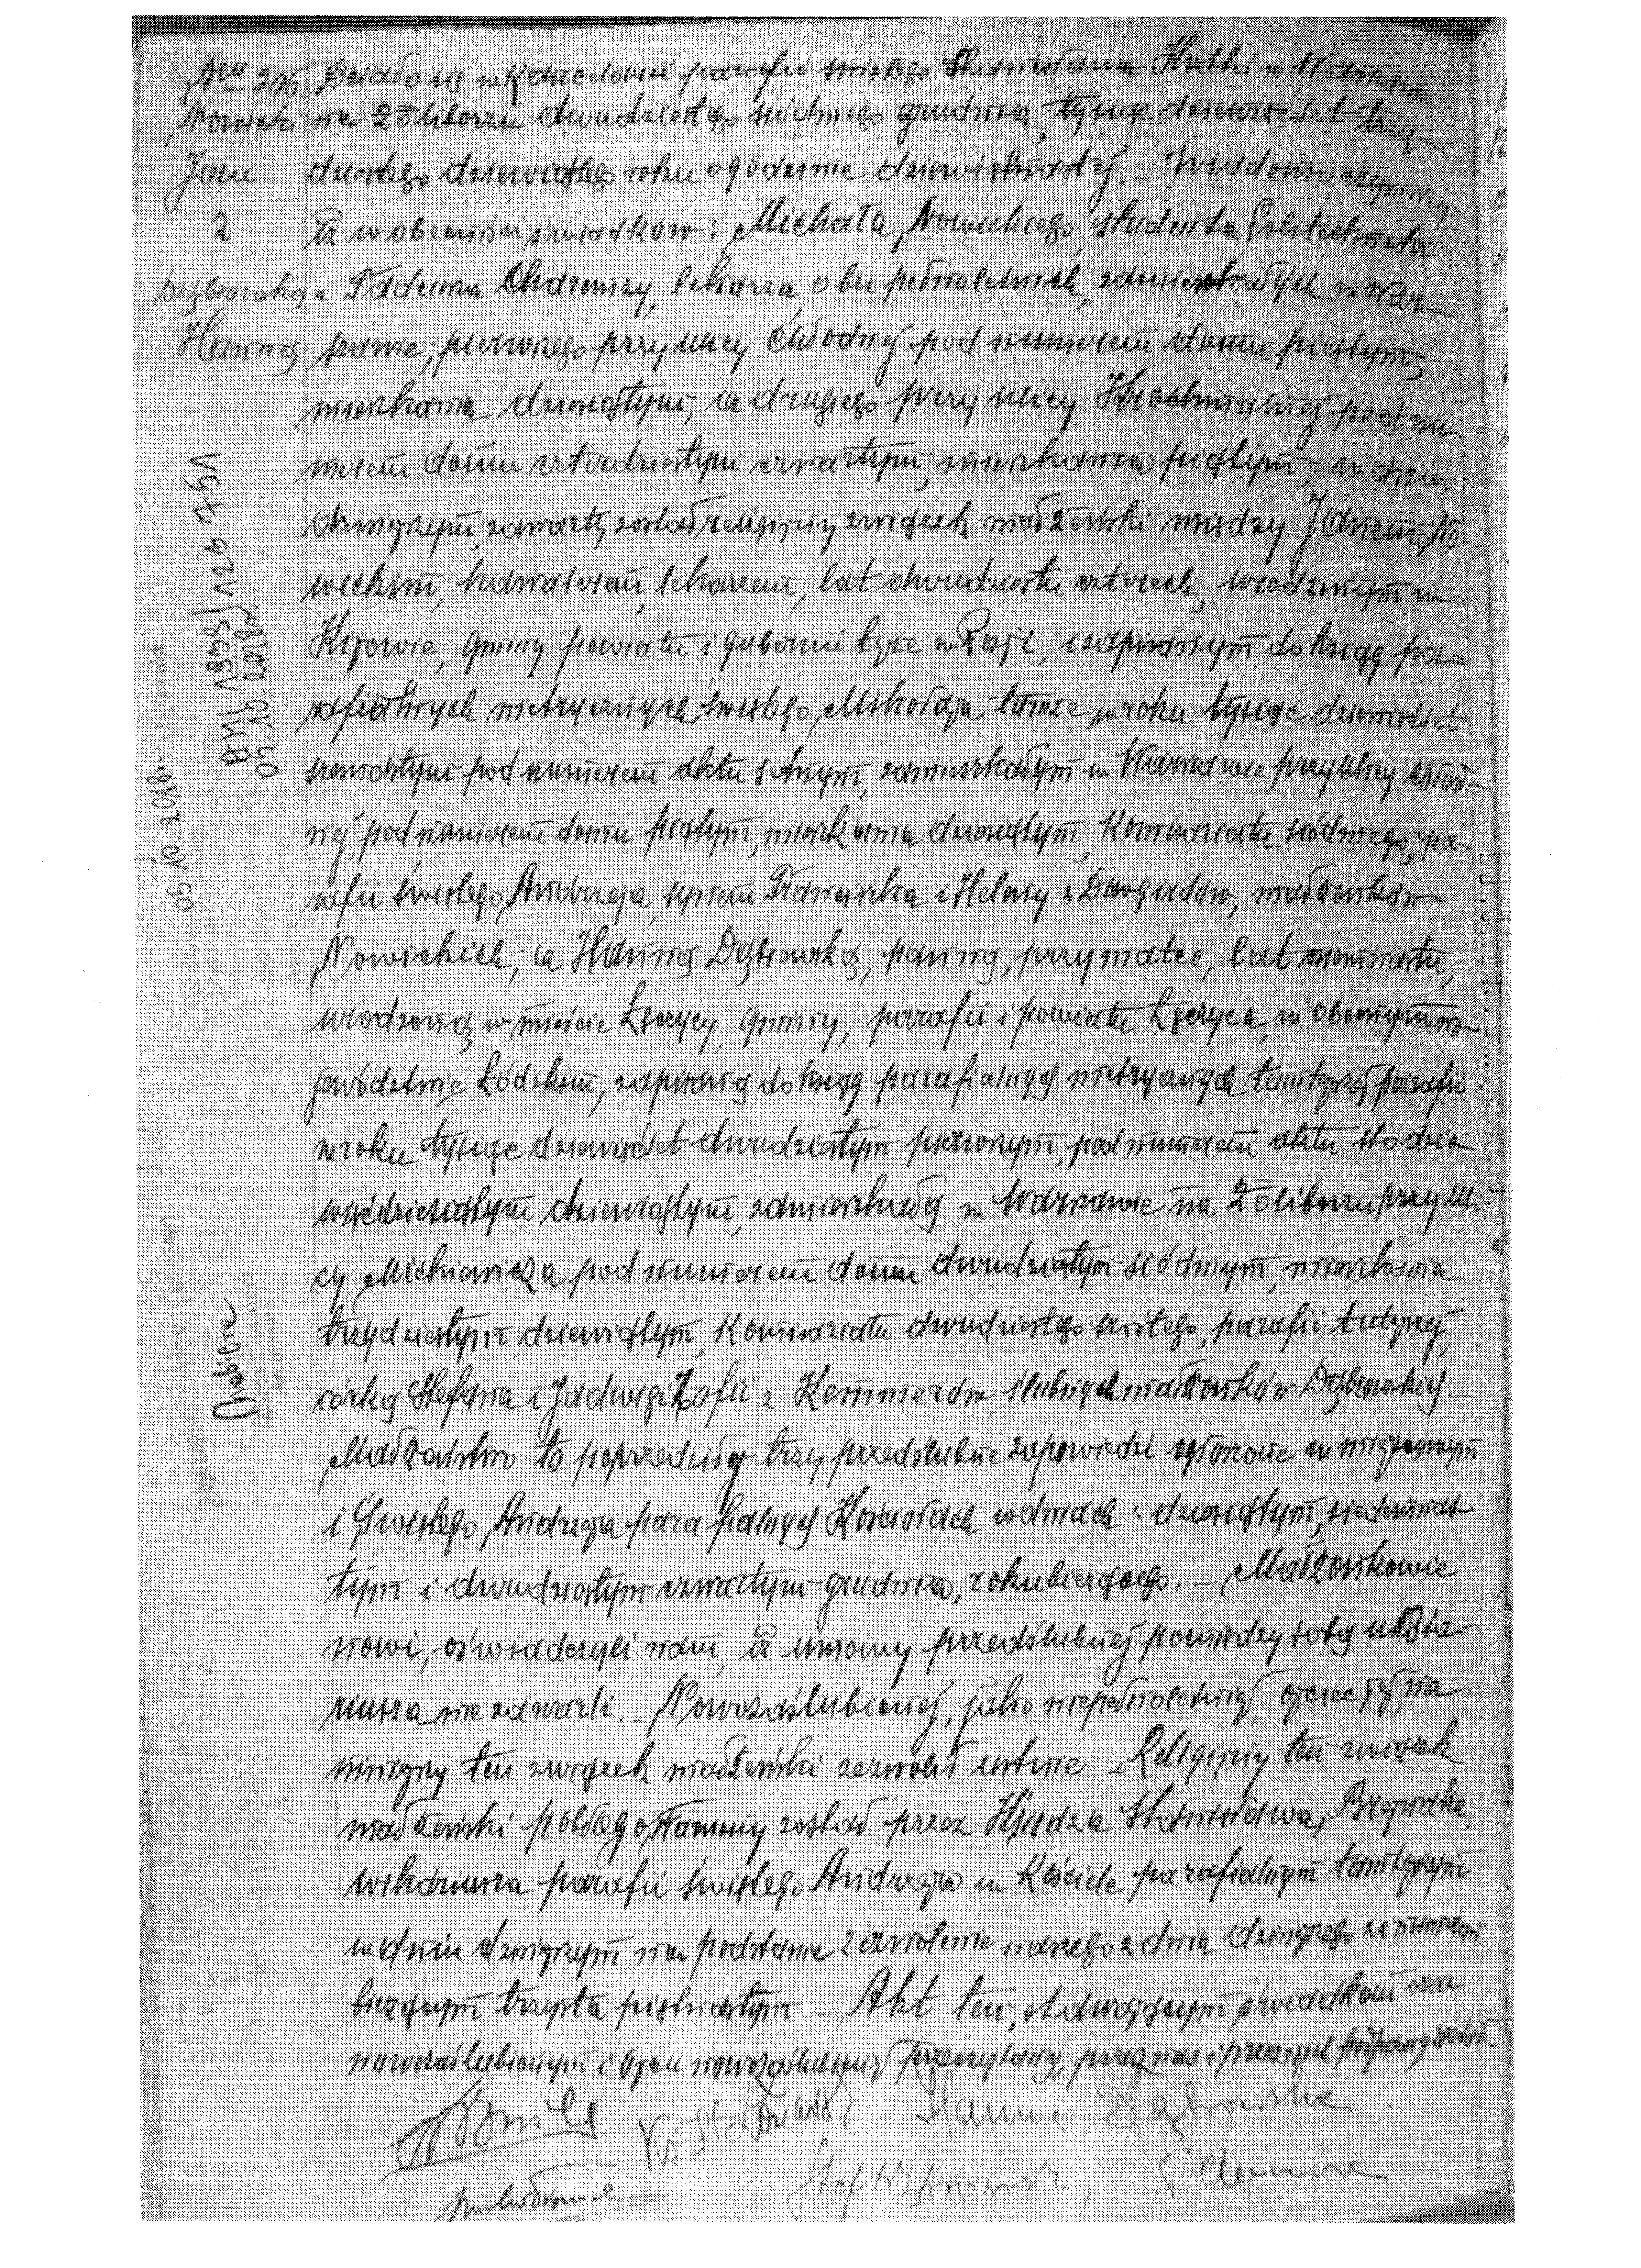 Nr 216 Działo się w Kancelarii parafii świętego Stanisława Kostki w Warszawie
Nowicki na Żoliborzu dwudziestego siódmego grudnia, tysiąc dziewięćset trzy-
Jan dziestego dziewiątego roku o godzinie dziewiętnastej. Wiadomo czynimy,
z iż w obecności świadków: Michała Nowickiego, studenta Politechniki
Dąbrowską i Tadeusza, lekarza, obu pełnoletnich, zamieszkałych w War-
Hanną szawie, pierwszego przy ulicy Chłodnej pod numerem domu piątym,
mieszkania dziewiątym, a drugiego przy ulicy Krochmalnej pod nu-
merem domu czterdziestym czwartym, mieszkania piątym, w dniu
dzisiejszym zawarty został religijny związek małżeński między Janem No-
wickim, kawalerem, lekarzem, lat trzydziestu czterech, urodzonym w
Kijowie, gminy powiatu i gubernii tejże w Rosji, i zapisanym do ksiąg pa-
rafialnych metrycznych świętego Mikołaja tamże w roku tysiąc dziewięćset
szesnastym pod numerem aktu setnym, zamieszkałym w Warszawie przy ulicy Chłod-
nej pod numerem domu piątym, mieszkania dziewiątym, Komisariatu siódmego, pa-
rafii świętego Andrzeja, synem Franciszka i Heleny z Dowgirdów, małżonków
Nowickich; a Hanną Dąbrowską, panną, przy matce, lat osiemnastu,
urodzoną w mieście Łęczycy, gminy, parafii i powiatu Łęczyca, w obecnym wo-
jewództwie Łódzkim, zapisaną do ksiąg parafialnych metrycznych tamtejszej parafii
w roku tysiąc dziewięćset dwudziestym pierwszym, pod numerem aktu sto dzie-
więćdziesiątym dziewiątym, zamieszkałą w Warszawie na Żoliborzu przy uli-
cy Mickiewicza pod numerem domu dwudziestym siódmym, mieszkania
trzydziestym dziewiątym, Komisariatu dwudziestego szóstego, parafii tutejszej,
córką Stefana i Jadwigi Zofii z Kemmerów, ślubnych małżonków Dąbrowskich.
Małżeństwo to poprzedziły trzy przedślubne zapowiedzi ogłoszone w miejscowym
i Świętego Andrzeja parafialnych Kościołach w dniach: dziesiątym, siedemnas-
tym i dwudziestym czwartym grudnia, roku bieżącego. - Małżonkowie
nowi, oświadczyli nam, iż umowy przedślubnej pomiędzy sobą u nota-
riusza nie zawarli. - Nowozaślubionej, jako niepełnoletniej, ojciec jej na
niniejszy ten związek małżeński zezwolił ustnie. - Religijny ten związek
małżeński pobłogosławiony został przez Księdza Stanisława
wikariusza parafii świętego Andrzeja w Kościele parafialnym tamtejszym
w dniu dzisiejszym na podstawie zezwolenia naszego z dnia dzisiejszego za numerem
bieżącym trzysta piętnastym. - Akt ten, stawającym świadkom oraz
nowozaślubionym i ojcu nowozaślubionej przeczytany, przez nas i przez nich podpisany został.
Hanna Dąbrowska
Stef Dąbrowski
05.10.2018r.